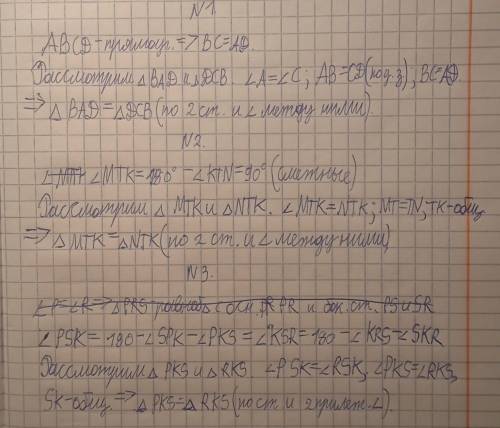 N1.
ABCD-прямоуг. => BC=AD.
Рассмотрим △BAD и △DCB. ∠A=∠C; AB=CD(по д.з), BC=AD
=> △BAD=△DCB(по 2 ст. и ∠ между ними).
N2.
∠MTK ∠MTK=180°-∠KTN=90°(смежные)
Рассмотрим △MTK и △NTK. ∠MTK=NTK; MT=TN, TK-общ.
=> △MTK=△NTK(по 2 ст. и ∠ между ними)
N3.
∠P=∠R => △PRS равноб △ с осн. PR PR и бок. ст. PS и SR
∠PSK=180-∠SPK-∠PKS=∠KSR=180-∠KRS-∠SKR
Рассмотрим △PKS и △RKS. ∠PSK=∠RSK, ∠PKS=∠RKS,
SK-общ => △PKS=△RKS(по ст. и 2 прилеж. ∠).